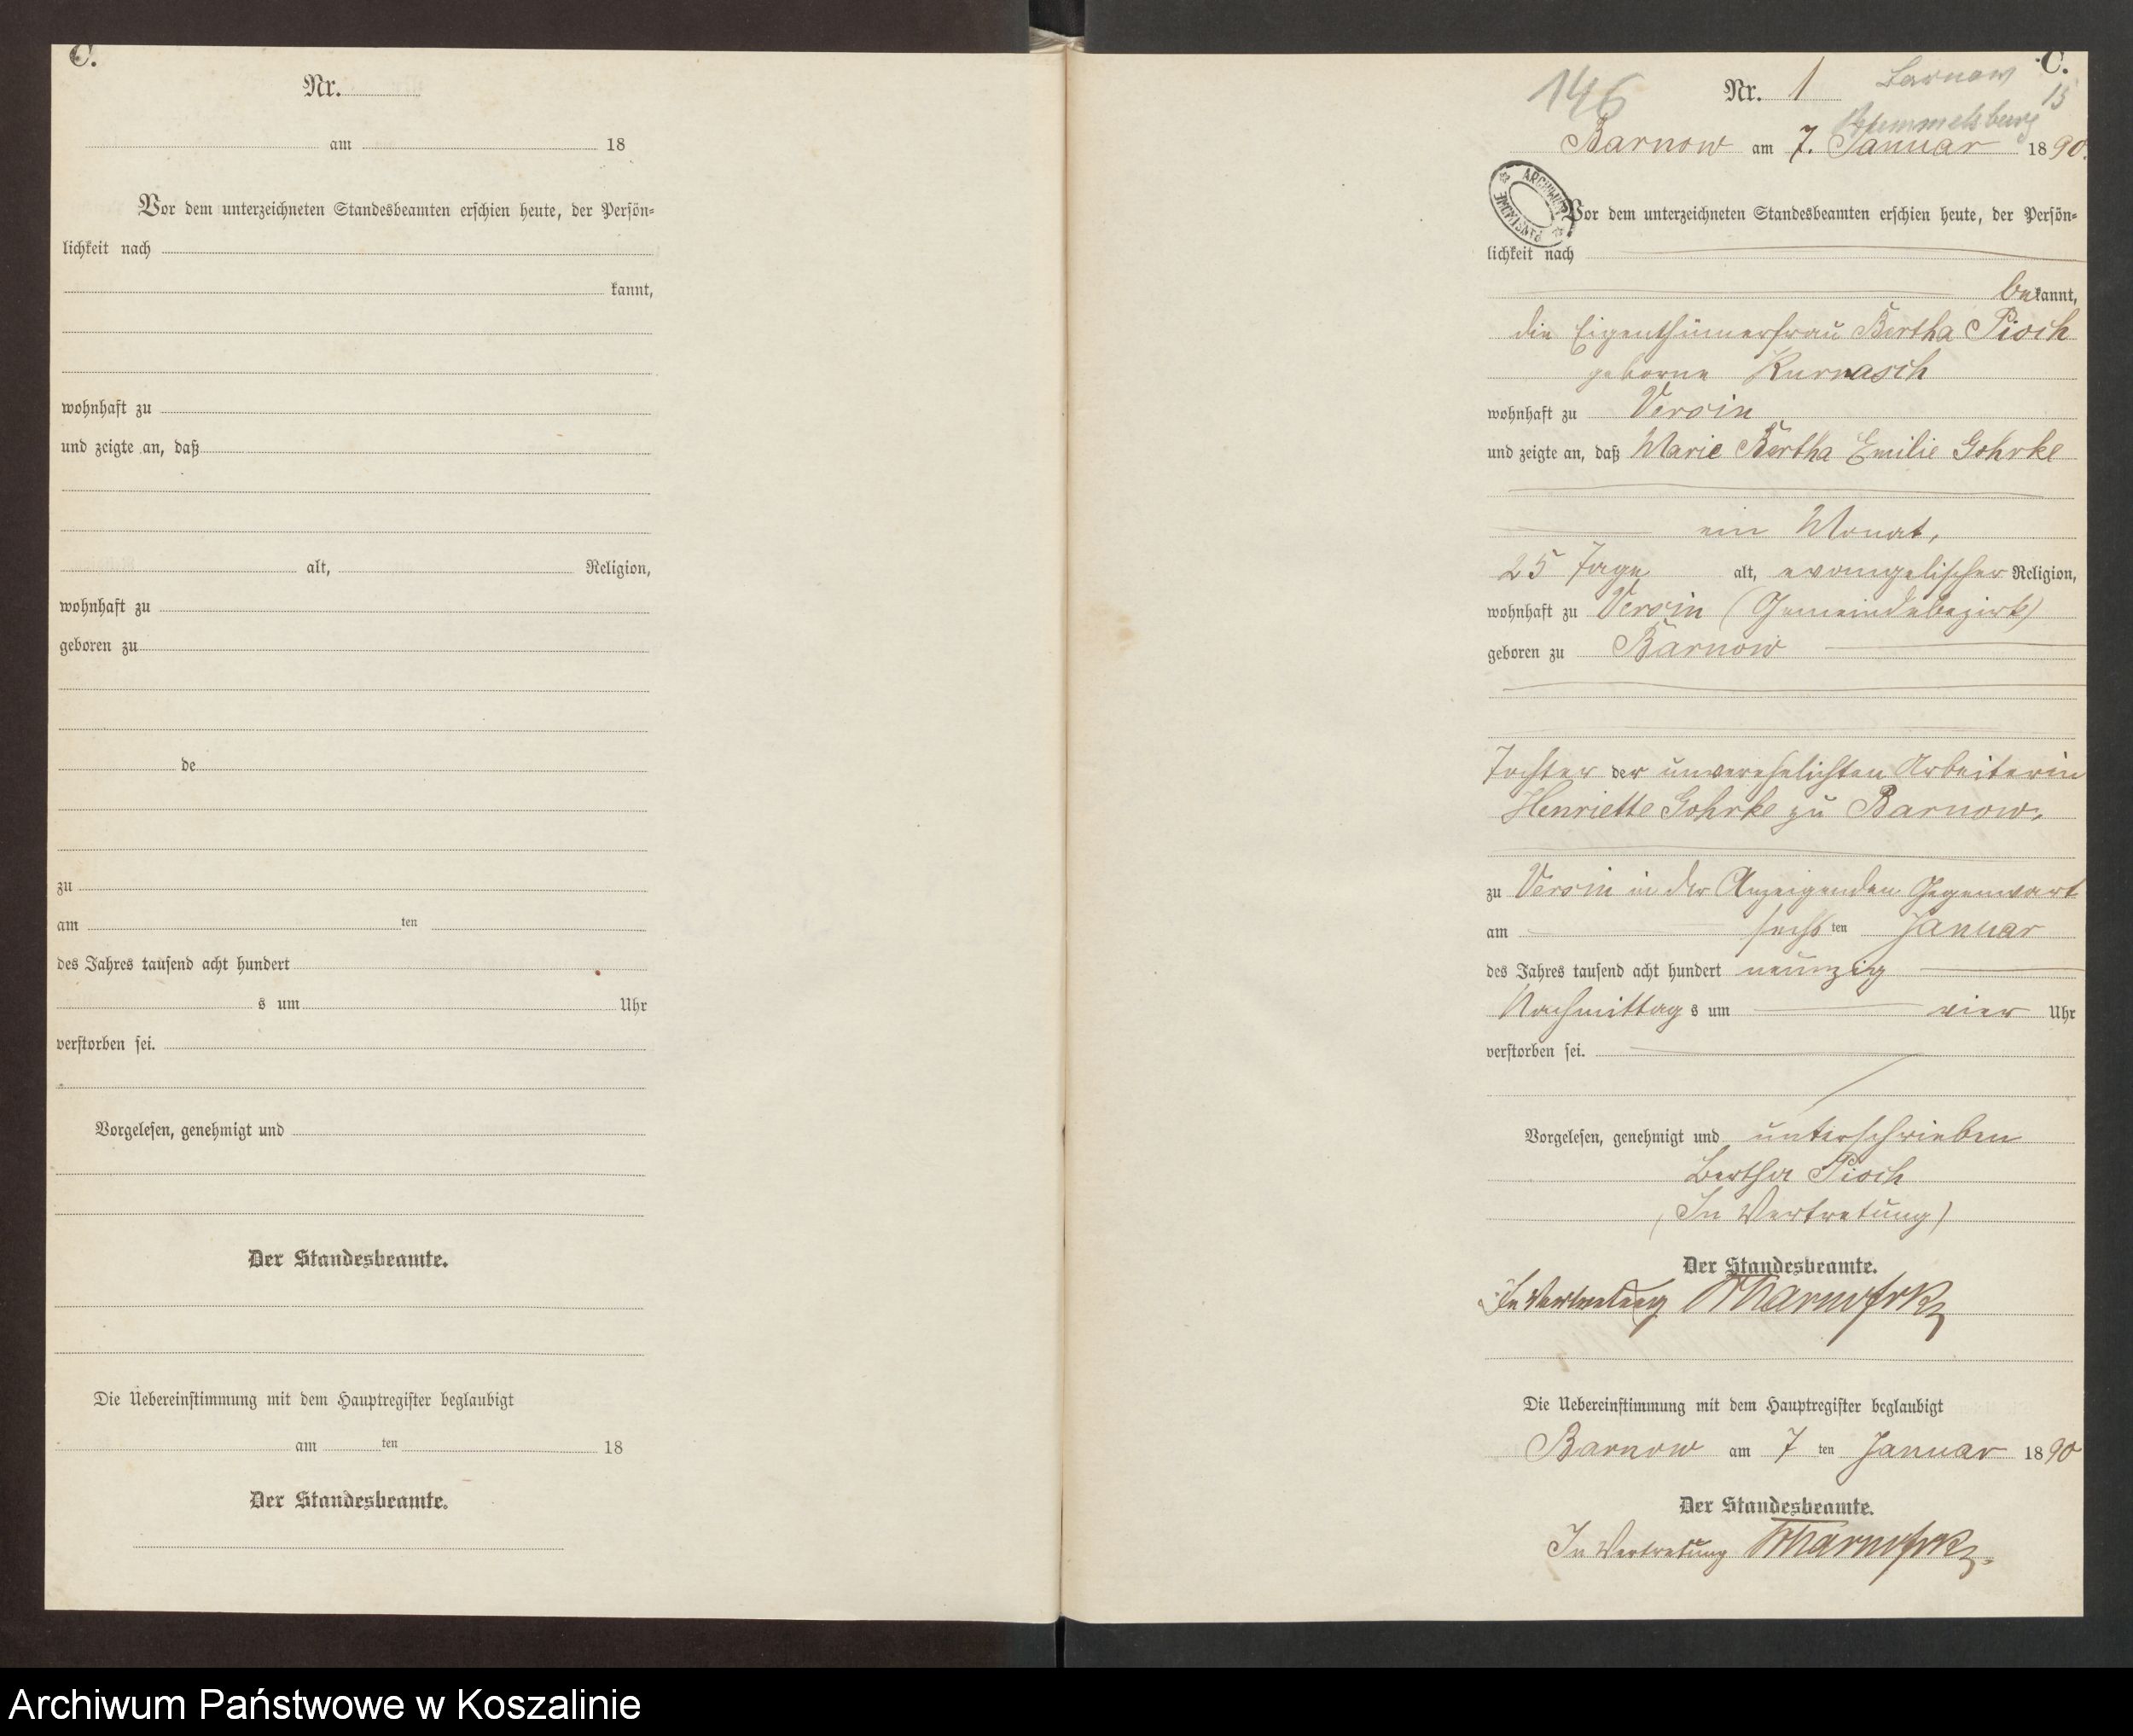 C.
Nr.
am 18
Vor dem unterzeichneten Standesbeamten erschien heute, der Persön-
lichkeit nach
kannt,
wohnhaft zu
und zeigte an, daß
alt, Religion,
wohnhaft zu
geboren zu
de
zu
am ten
des Jahres tausend acht hundert
s um Uhr
verstorben sei.
Vorgelesen, genehmigt und
Der Standesbeamte.
Die Uebereinstimmung mit dem Hauptregister beglaubigt
am ten 18
Der Standesbeamte.
C.
146 Nr. 1 Barnow
15
Rummelsburg
Barnow am 7. Januar 1890.
ARCHIWUM PAŃSTWOWE
Vor dem unterzeichneten Standesbeamten erschien heute, der Persön-
lichkeit nach
bekannt,
die Eigenthümerfrau Bertha Pioch
geborne Kurnasch
wohnhaft zu Versin
und zeigte an, daß Marie Bertha Emilie Gohrke
ein Monat,
25 Tage alt, evangelischer Religion,
wohnhaft zu Versin (Gemeindebezirk)
geboren zu Barnow
Tochter der unverehelichten Arbeiterin
Henriette Gohrke zu Barnow,
zu Versin in der Anzeigenden Gegenwart
am sechsten Januar
des Jahres tausend acht hundert neunzig
Nachmittags um vier Uhr
verstorben sei.
Vorgelesen, genehmigt und unterschrieben
Bertha Pioch
(In Vertretung)
Der Standesbeamte.
In Vertretung
Die Uebereinstimmung mit dem Hauptregister beglaubigt
Barnow am 7ten Januar 1890
Der Standesbeamte.
In Vertretung
Archiwum Państwowe w Koszalinie